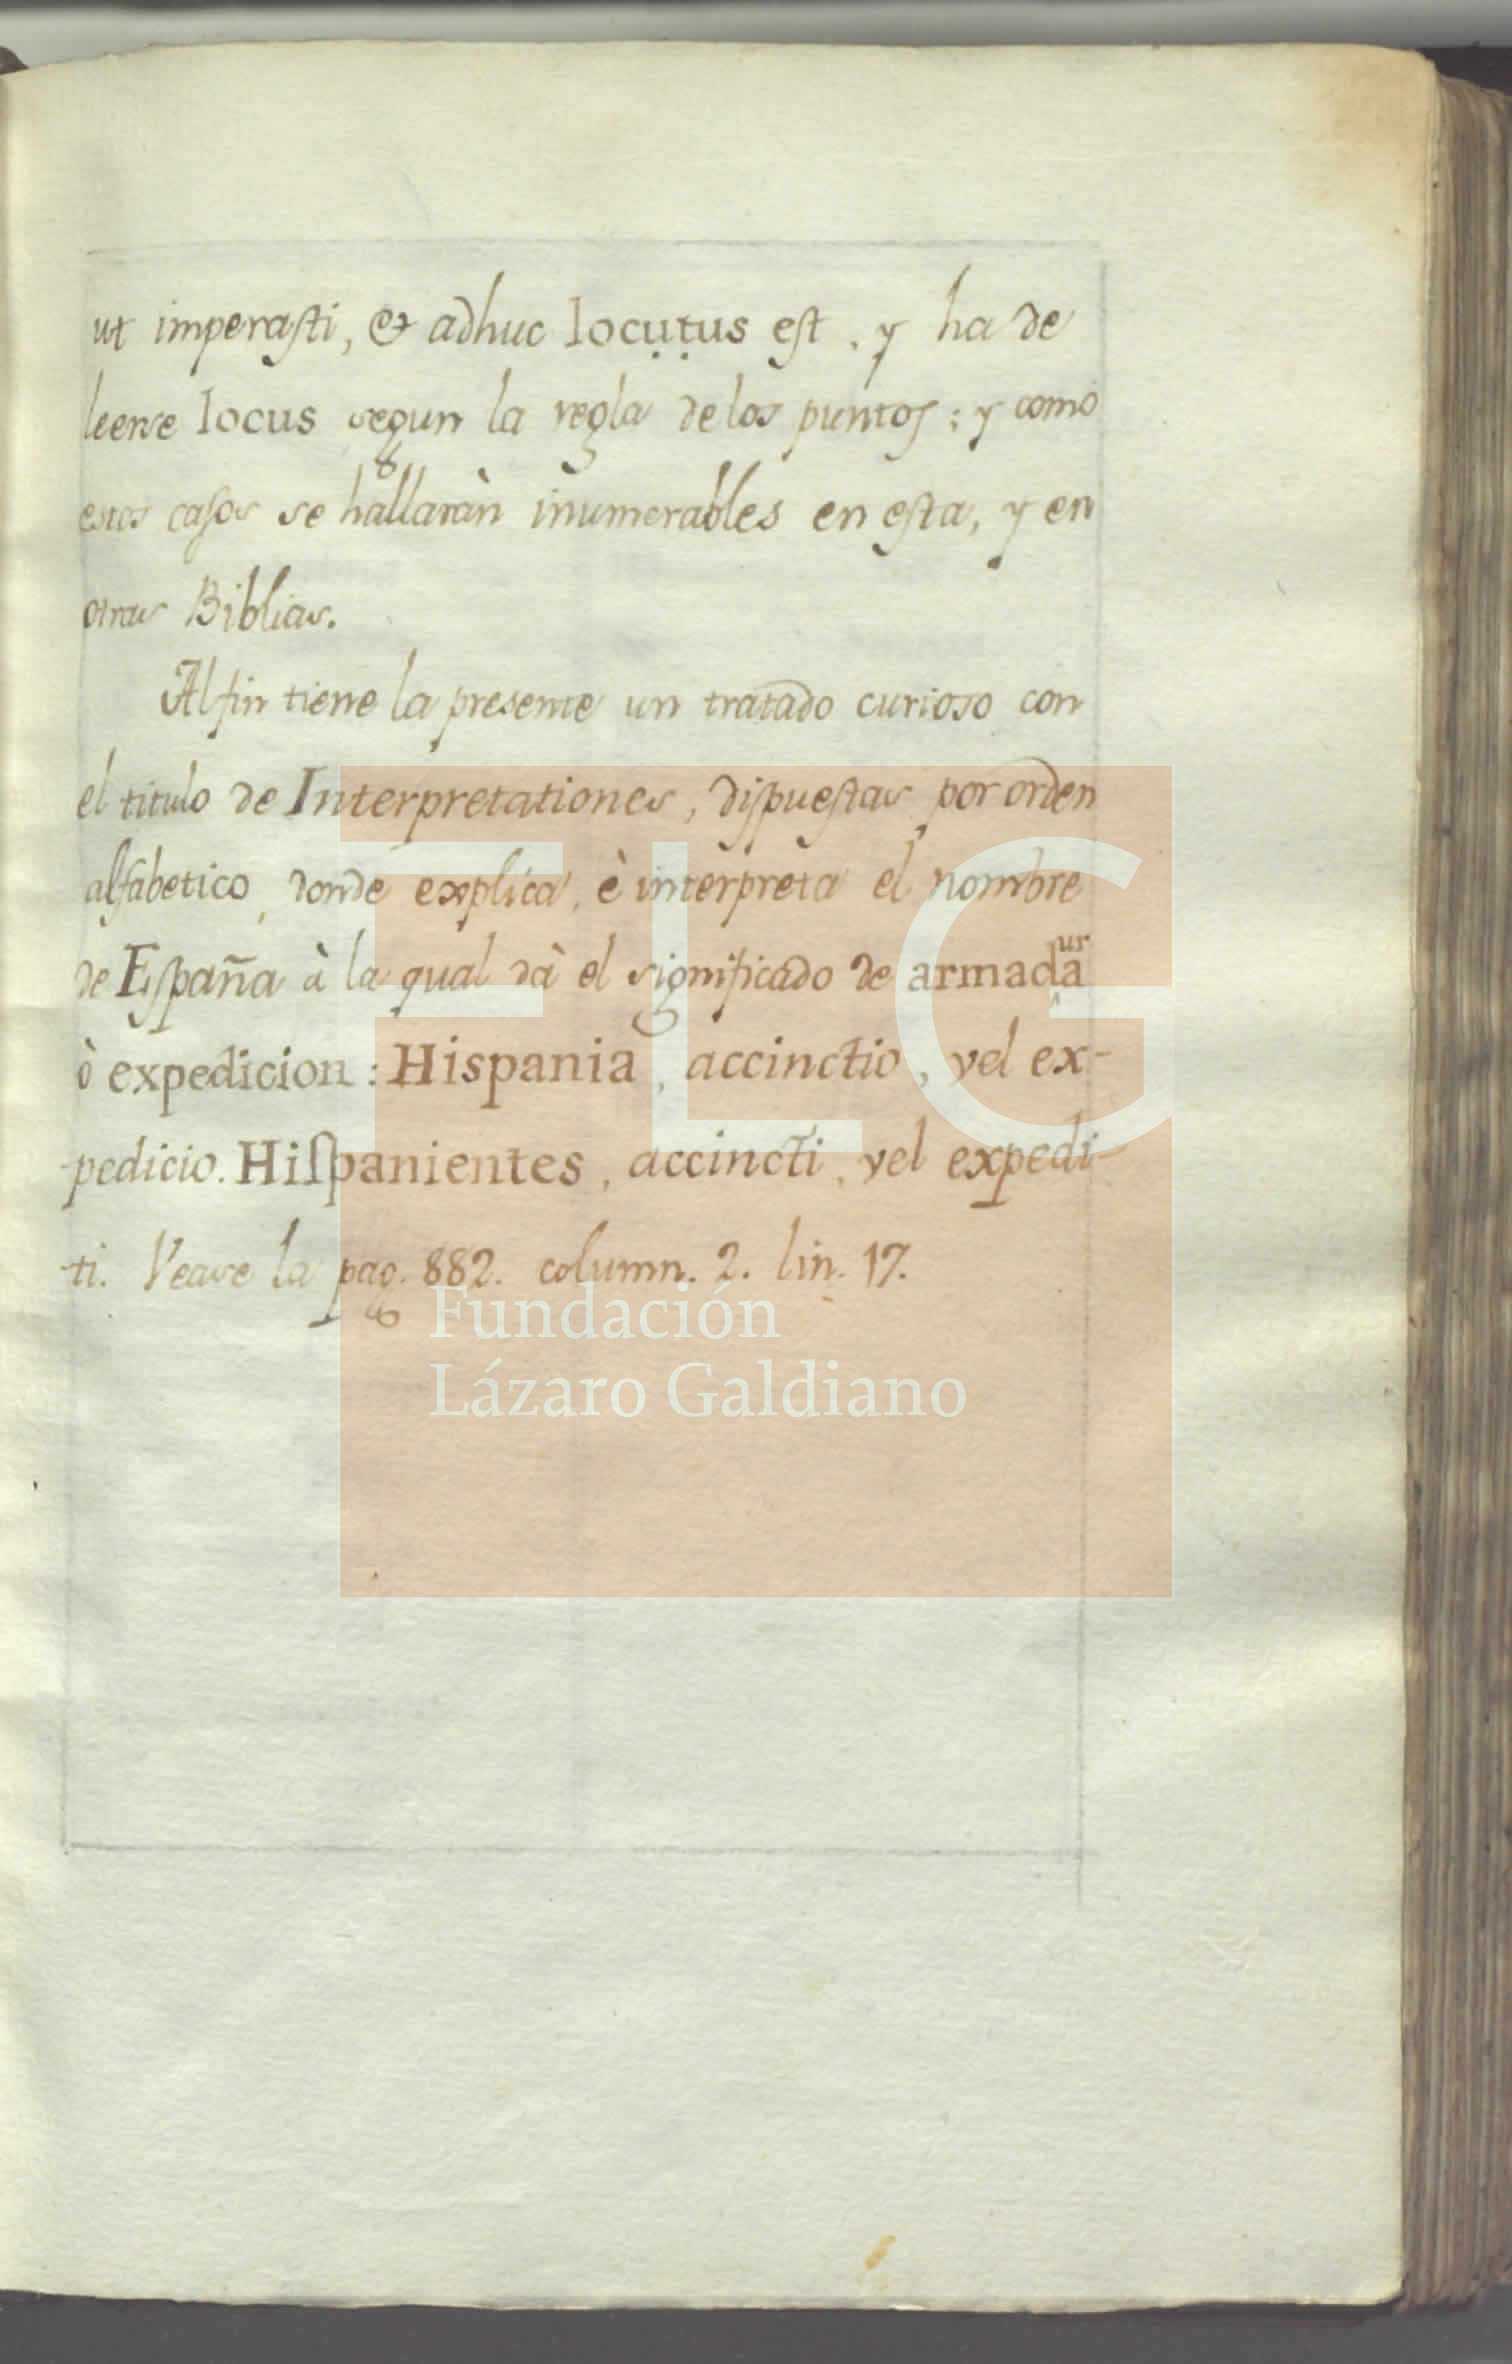 ut imperasti, et adhuc locụṭus est, y ha de
leerse locus segun la regla de los puntos; y como
estos casos se hallaràn inumerables en esta, y en
otras Biblias.
Al fin tiene la presente un tratado curioso con
el titulo de Interpretationes, dispuestas por orden
alfabetico, donde explica, è interpreta el nombre
de España à la qual dà el significado de armadaur
ò expedicion: Hispania, accinctio, vel ex-
pedicio. Hispanientes, accincti, vel expedi-
ti. Vease la pag. 882. column. 2. lin. 17.
FLG
Fundación
Lázaro Galdiano